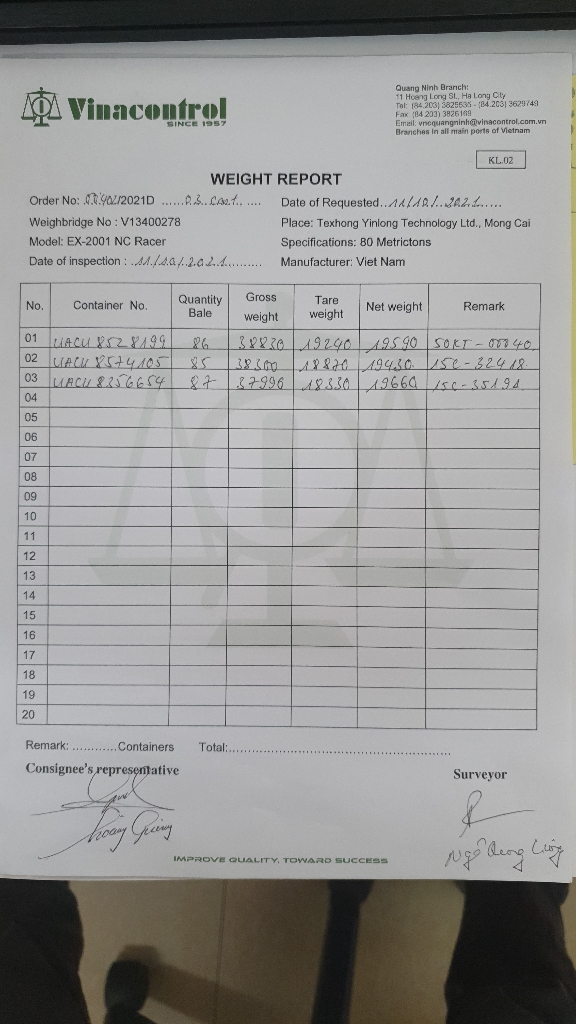 Vinacontrol
SINCE 1957
Quang Ninh Branch:
11 Hoang Long St., Ha Long City
Tel: (84.203) 3825535 - (84.203) 3629749
Fax: (84.203) 3826169
Email: vncquangninh@vinacontrol.com.vn
Branches in all main ports of Vietnam
KL.02
WEIGHT REPORT
Order No: /2021D ......03 cont.. ....
Date of Requested..11/10/.2021.....
Weighbridge No : V13400278
Place: Texhong Yinlong Technology Ltd., Mong Cai
Model: EX-2001 NC Racer
Specifications: 80 Metrictons
Date of inspection : .11/10/.2021.........
Manufacturer: Viet Nam
No. Container No. Quantity Bale Gross weight Tare weight Net weight Remark
01 UACU 8528199 86 38830 19240 19590 50KT - 00040
02 UACU 8574105 85 38300 18870 19430 15C - 32418
03 UACU 8356654 87 37990 18330 19660 15C - 35194
04
05
06
07
08
09
10
11
12
13
14
15
16
17
18
19
20
Remark: ............Containers Total:......................................................
Consignee's representative
Surveyor
Ngô
IMPROVE QUALITY, TOWARD SUCCESS